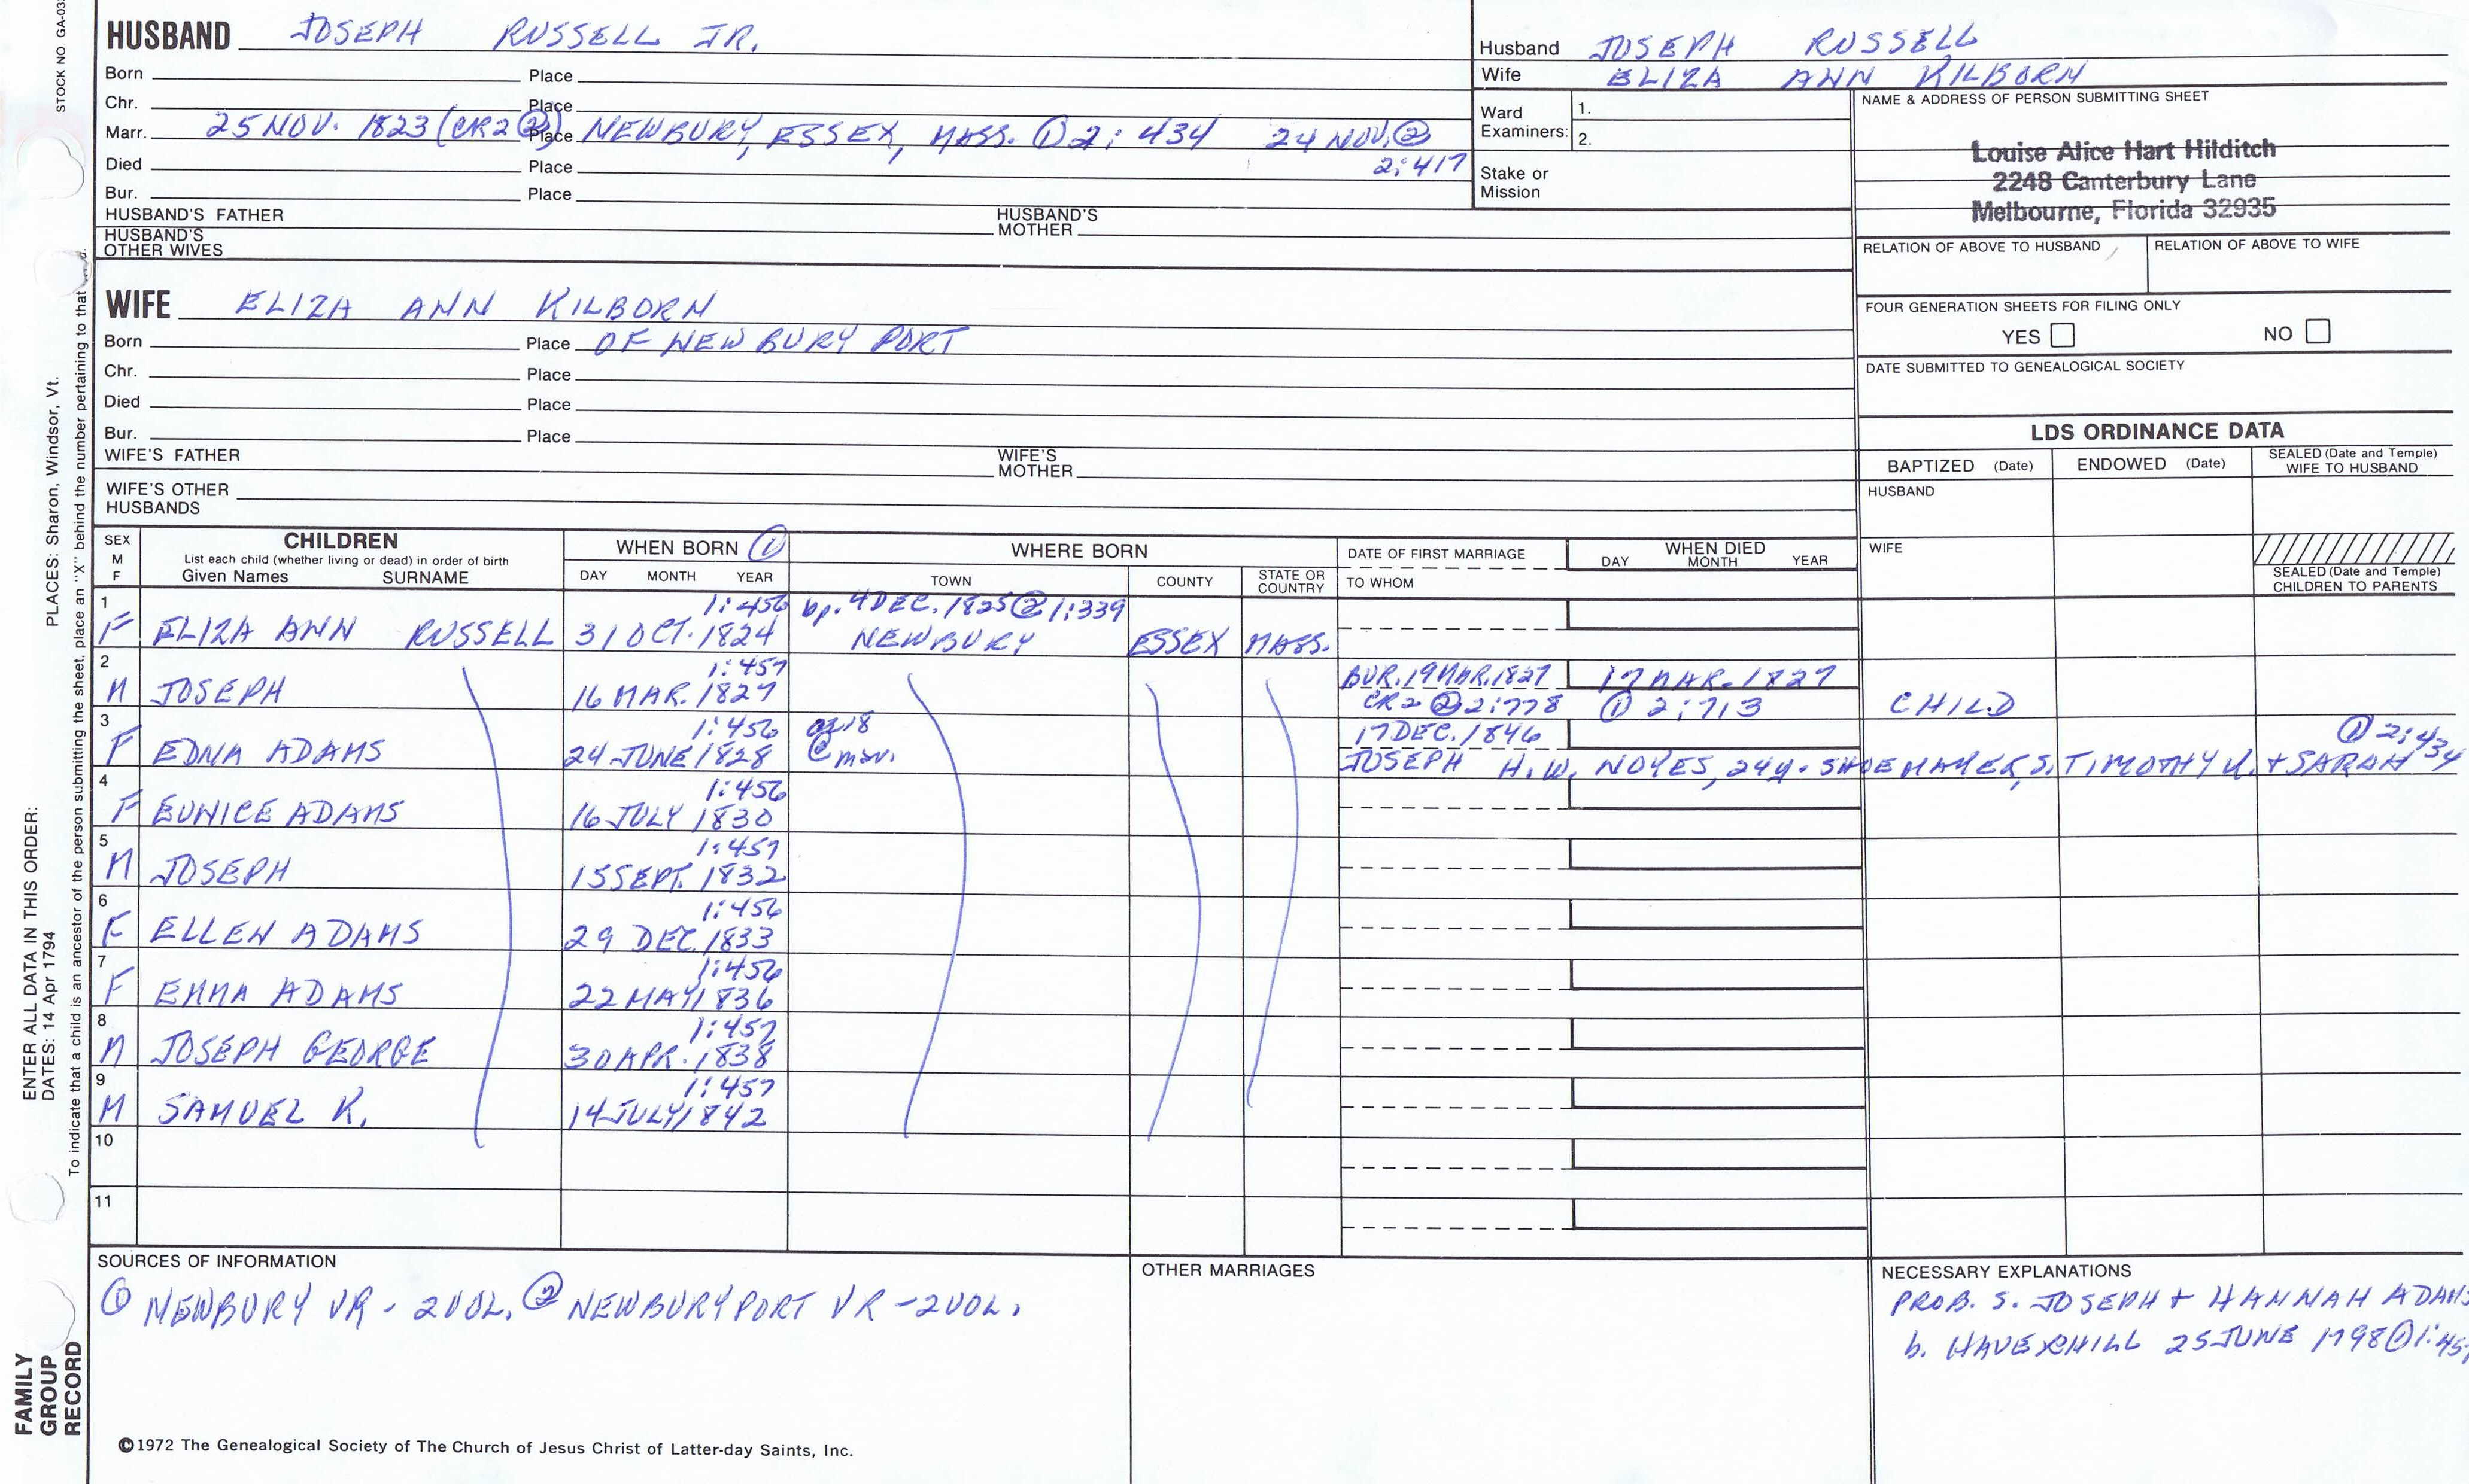 STOCK NO GA-03
HUSBAND JOSEPH RUSSELL JR.
Born Place
Chr. Place
Marr. 25 NOV. 1823 (CR2 ②) Place NEWBURY, ESSEX, MASS. ① 2:434 24 NOV. ②
2:417
Died Place
Bur. Place
HUSBAND'S FATHER HUSBAND'S MOTHER
HUSBAND'S OTHER WIVES
Husband JOSEPH RUSSELL
Wife ELIZA ANN KILBORN
Ward Examiners: 1.
2.
Stake or Mission
NAME & ADDRESS OF PERSON SUBMITTING SHEET
Louise Alice Hart Hilditch
2248 Canterbury Lane
Melbourne, Florida 32935
RELATION OF ABOVE TO HUSBAND RELATION OF ABOVE TO WIFE
FOUR GENERATION SHEETS FOR FILING ONLY
YES NO
DATE SUBMITTED TO GENEALOGICAL SOCIETY
WIFE ELIZA ANN KILBORN
Born Place OF NEWBURY PORT
Chr. Place
Died Place
Bur. Place
WIFE'S FATHER WIFE'S MOTHER
WIFE'S OTHER HUSBANDS
LDS ORDINANCE DATA
BAPTIZED (Date) ENDOWED (Date) SEALED (Date and Temple) WIFE TO HUSBAND
HUSBAND
WIFE
SEALED (Date and Temple) CHILDREN TO PARENTS
SEX M F CHILDREN WHEN BORN ① WHERE BORN DATE OF FIRST MARRIAGE WHEN DIED
List each child (whether living or dead) in order of birth
Given Names SURNAME DAY MONTH YEAR TOWN COUNTY STATE OR COUNTRY TO WHOM DAY MONTH YEAR
1 1:456 bp. 4 DEC. 1825 ② 1:339
F ELIZA ANN RUSSELL 31 OCT. 1824 NEWBURY ESSEX MASS.
2 1:457 BUR. 19 MAR. 1827 17 MAR. 1827
M JOSEPH 16 MAR. 1827 CR2 ② 2:778 ① 2:713 CHILD
3 1:456 18 17 DEC. 1846 ① 2:434
F EDNA ADAMS 24 JUNE 1828 @ mar. JOSEPH H. W. NOYES, 24y. SHOEMAKER, S. TIMOTHY K. + SARAH
4 1:456
F EUNICE ADAMS 16 JULY 1830
5 1:457
M JOSEPH 15 SEPT. 1832
6 1:456
F ELLEN ADAMS 29 DEC. 1833
7 1:456
F EMMA ADAMS 22 MAY 1836
8 1:457
M JOSEPH GEORGE 30 APR. 1838
9 1:457
M SAMUEL K. 14 JULY 1842
10
11
SOURCES OF INFORMATION
① NEWBURY VR - 2 VOL. ② NEWBURYPORT VR - 2 VOL.
OTHER MARRIAGES
NECESSARY EXPLANATIONS
PROB. S. JOSEPH + HANNAH ADAMS
b. HAVERHILL 25 JUNE 1798 ① 1:45
©1972 The Genealogical Society of The Church of Jesus Christ of Latter-day Saints, Inc.
FAMILY GROUP RECORD
ENTER ALL DATA IN THIS ORDER:
DATES: 14 Apr 1794 PLACES: Sharon, Windsor, Vt.
To indicate that a child is an ancestor of the person submitting the sheet, place an "X" behind the number pertaining to that